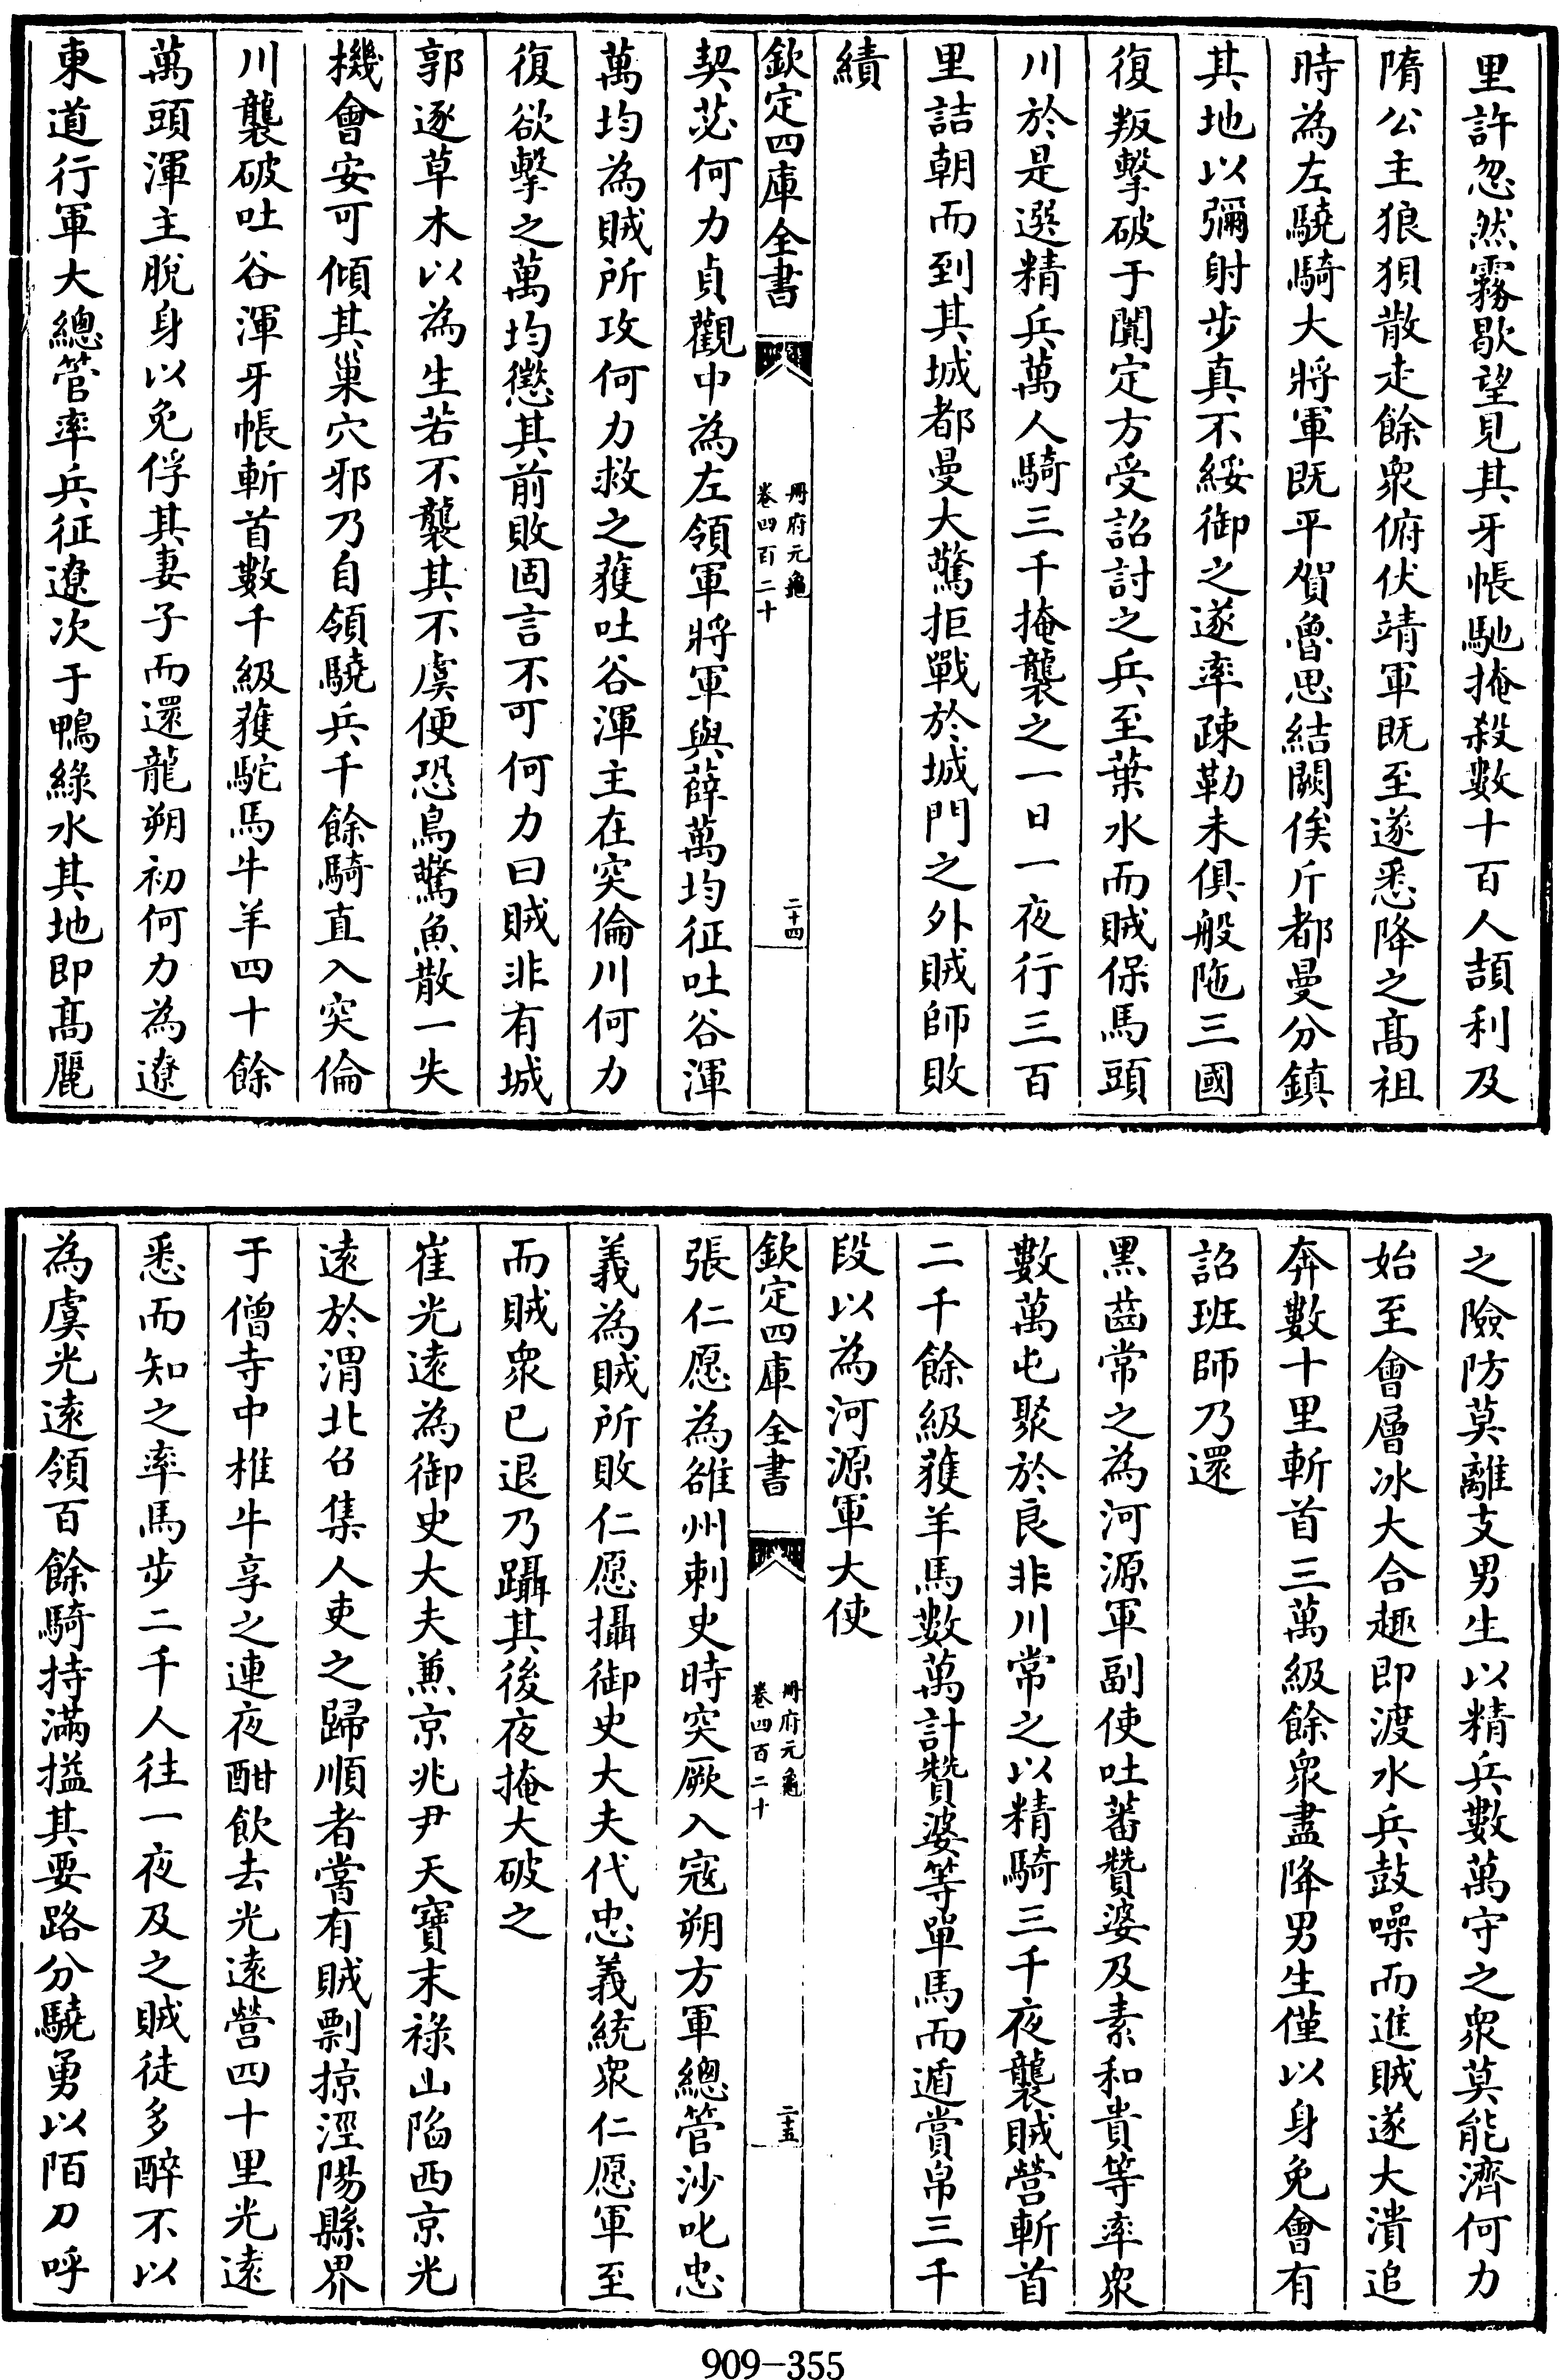 里許忽然霧歇望見其牙帳馳掩殺數十百人頡利及
隋公主狼狽散走餘衆俯伏靖軍既至遂悉降之髙祖
時為左驍騎大將軍既平賀魯思結闕俟斤都曼分鎮
其地以彌射步真不綏御之遂率疎勒朱俱般陁三國
復叛擊破于闐定方受詔討之兵至葉水而賊保馬頭
川於是選精兵萬人騎三千掩襲之一日一夜行三百
里詰朝而到其城都曼大驚拒戰於城門之外賊師敗
績
欽定四庫全書
冊府元龜
卷四百二十
二十四
契苾何力貞觀中為左領軍將軍與薛萬均征吐谷渾
萬均為賊所攻何力救之獲吐谷渾主在突倫川何力
復欲擊之萬均懲其前敗固言不可何力曰賊非有城
郭逐草木以為生若不襲其不虞便恐鳥驚魚散一失
機會安可傾其巢穴邪乃自領驍兵千餘騎直入突倫
川襲破吐谷渾牙帳斬首數千級獲駝馬牛羊四十餘
萬頭渾主脫身以免俘其妻子而還龍朔初何力為遼
東道行軍大總管率兵征遼次于鴨綠水其地即髙麗
之險防莫離支男生以精兵數萬守之衆莫能濟何力
始至會層冰大合趣即渡水兵鼓噪而進賊遂大潰追
奔數十里斬首三萬級餘衆盡降男生僅以身免會有
詔班師乃還
黑齒常之為河源軍副使吐蕃贊婆及素和貴等率衆
數萬屯聚於良非川常之以精騎三千夜襲賊營斬首
二千餘級獲羊馬數萬計贊婆等單馬而遁賞帛三千
段以為河源軍大使
欽定四庫全書
冊府元龜
卷四百二十
二十五
張仁愿為雒州刺史時突厥入寇朔方軍總管沙吒忠
義為賊所敗仁愿攝御史大夫代忠義統衆仁愿軍至
而賊衆已退乃躡其後夜掩大破之
崔光逺為御史大夫兼京兆尹天寶末祿山陷西京光
逺於渭北召集人吏之歸順者嘗有賊剽掠涇陽縣界
于僧寺中椎牛享之連夜酣飲去光逺營四十里光逺
悉而知之率馬步二千人往一夜及之賊徒多醉不以
為虞光逺領百餘騎持滿搤其要路分驍勇以陌刀呼
909-355